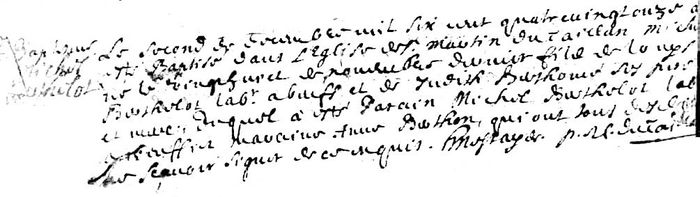 Baptesme
Michel
Berthelot
Le second de decembre mil six cent quatrevingt onze a
este Baptisé dans L'Eglise de St martin du taillan Michel
né le vingt huict de novembre dernier fils de Louys
Berthelot labr a boeuff et de Judith Berthomé ses pere
et mere, auquel a esté Parain Michel Berthelot lab
a boeuff et maraine Anne Berthon, qui ont tous declaré
ne scavoir signer de ce enquis.